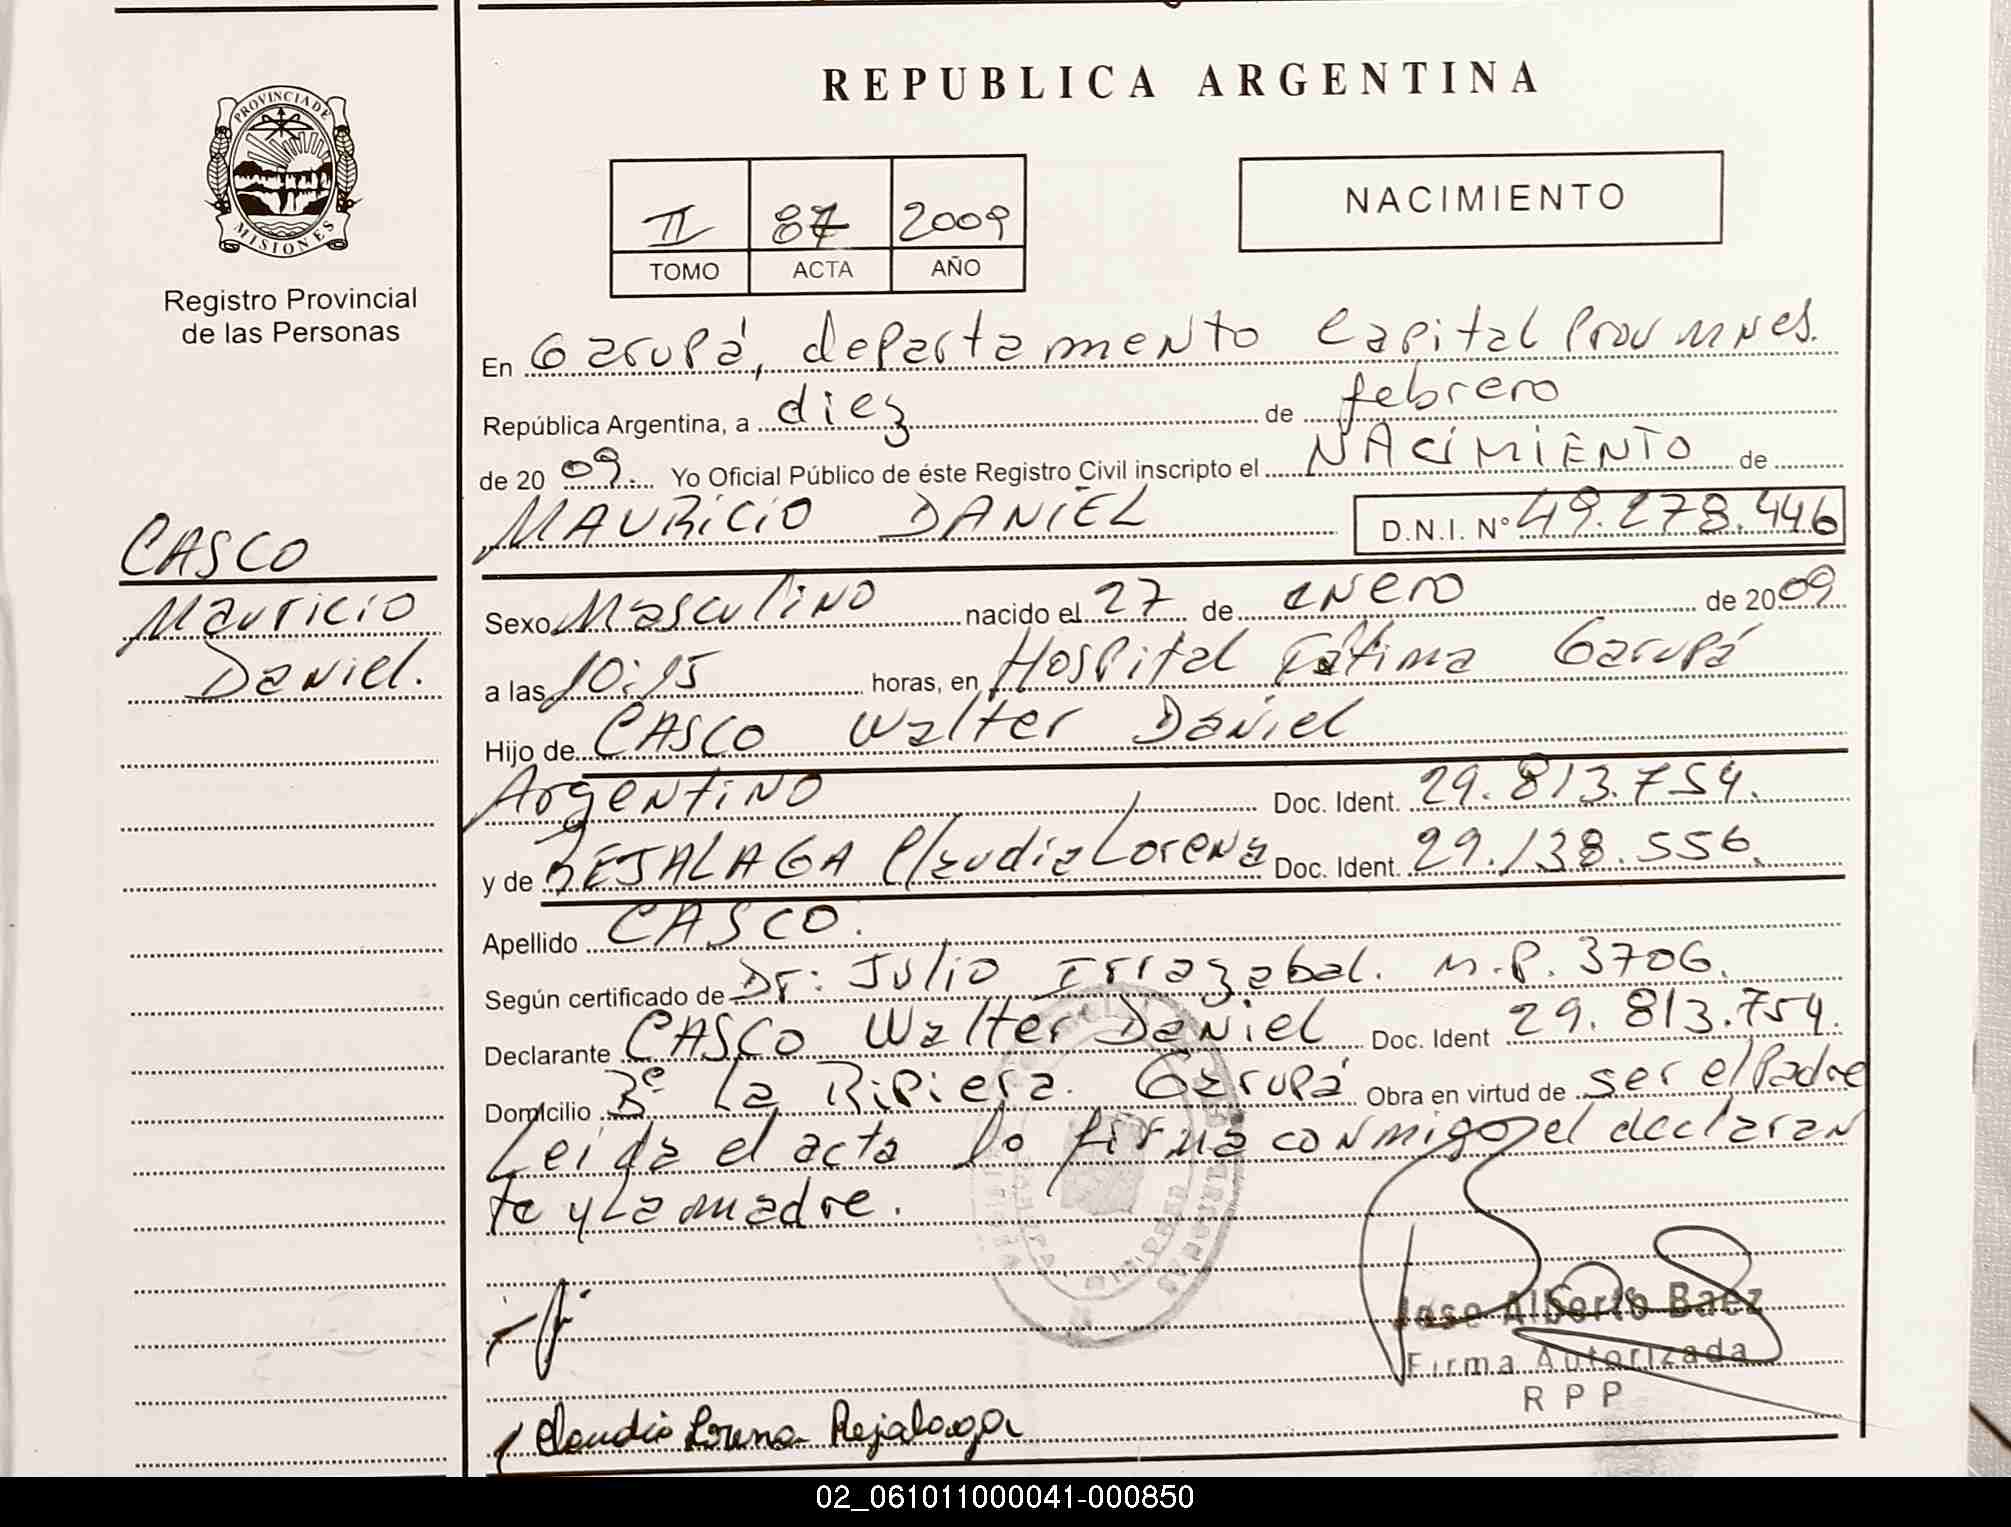 REPUBLICA ARGENTINA
PROVINCIA DE
MISIONES
Registro Provincial
de las Personas
II 87 2009
TOMO ACTA AÑO
NACIMIENTO
En Garupá, departamento Capital Prov Mnes.
República Argentina, a diez de febrero
de 2009. Yo Oficial Público de éste Registro Civil inscripto el NACIMIENTO de
MAURICIO DANIEL D.N.I. Nº 49.278.446
CASCO
Mauricio
Daniel.
Sexo Masculino nacido el 27 de enero de 2009
a las 10:15 horas, en Hospital Fátima Garupá
Hijo de CASCO Walter Daniel
Argentino Doc. Ident. 29.813.754.
y de REJALAGA Claudia Lorena Doc. Ident. 29.138.556.
Apellido CASCO.
Según certificado de Dr: Julio Irrazabal. M.P. 3706.
Declarante CASCO Walter Daniel Doc. Ident 29.813.754.
Domicilio Bº La Ripiera. Garupá Obra en virtud de ser el Padre
Leída el acta lo firma conmigo el declaran
te y La madre.
Jose Alberto Baez
Firma Autorizada
R P P
Claudia Lorena Rejalaga
02_061011000041-000850